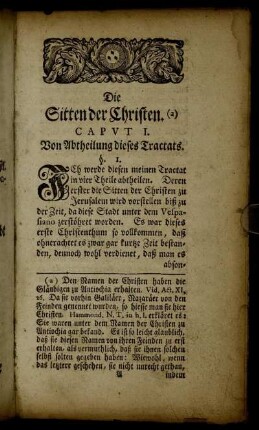 Die
Sitten der Christen. (a)
CAPVT I.
Von Abtheilung dieses Tractats.
§. 1.
ICh werde diesen meinen Tractat
in vier Theile abtheilen. Deren
erster die Sitten der Christen zu
Jerusalem wird vorstellen biß zu
der Zeit, da diese Stadt unter dem Vespa-
siano zerstöhret worden. Es war dieses
erste Christenthum so vollkommen, daß
ohnerachtet es zwar gar kurtze Zeit bestan-
den, dennoch wohl verdienet, daß man es
abson-
(a) Den Namen der Christen haben die
Gläubigen zu Antiochia erhalten. Vid. Act. XI,
26. Da sie vorhin Galiläer, Nazaräer von den
Feinden genennet wurden, so hiesse man sie hier
Christen. Hammond. N. T. in h. l. erkläret es:
Sie waren unter dem Namen der Christen zu
Antiochia gar bekand. Es ist so leicht glaublich,
daß sie diesen Namen von ihren Feinden zu erst
erhalten, als vermuthlich, daß sie ihnen solchen
selbst solten gegeben haben: Wiewohl, wenn
das letztere geschehen, sie nicht unrecht gethan,
A
indem